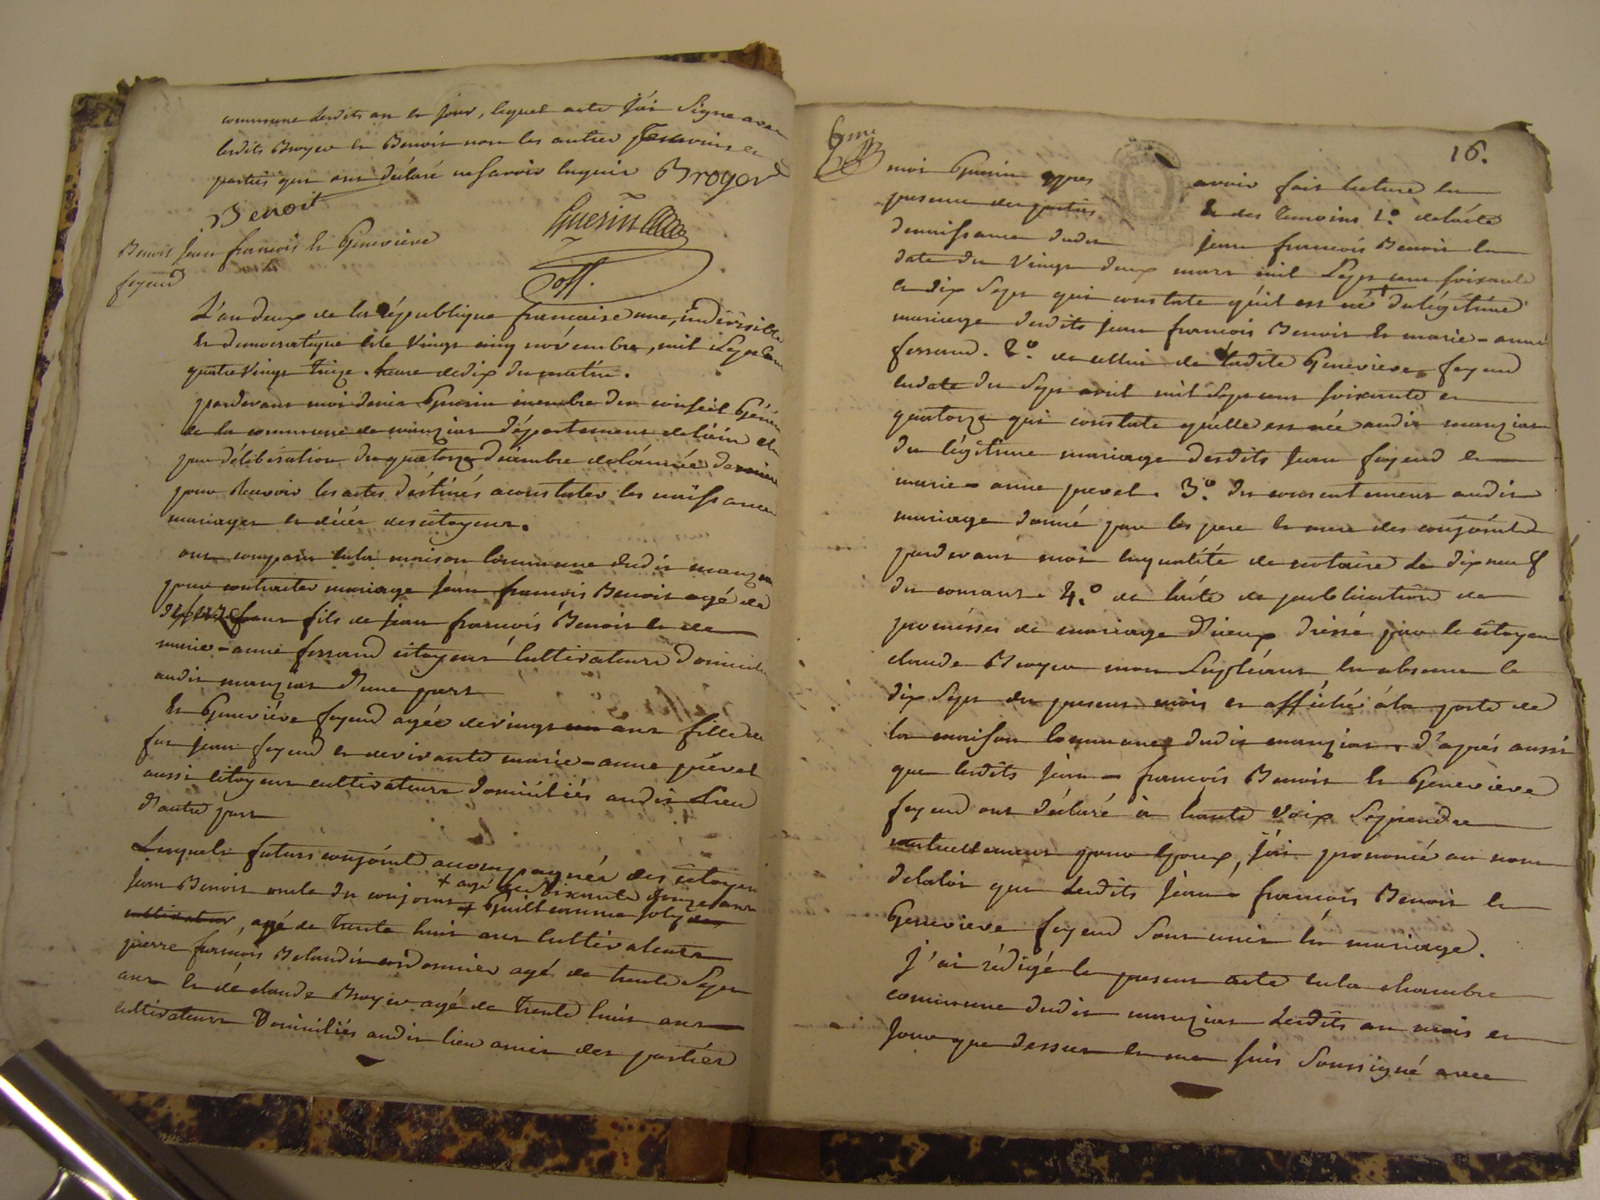 commune lesdits an et jour, lequel acte j'ai signé avec
lesdits Broyer et Benoit non les autres temoins et
parties qui ont déclaré ne savoir luquis Broyer
Benoit
Guerin
Benoit Jean françois et Geneviève
feyeud
off.
L'an deux de la république francaise une, indivisible
et democratique et le vingt cinq novembre, mil sept cen
quatre vingt treize. heure de dix du matin.
pardevant moi denis Guerin membre du conseil Géné
de la commune de manziat département de l'ain élu
par délibération du quatorze décembre de l'année derniere
pour recevoir les actes déstinés a constater les naissances
mariages et décés des citoyens.
ont comparu en la maison commune dudit manziat
pour contracter mariage Jean françois Benoit agé de
ans fils de jean françois Benoit et de
marie-anne ferrand citoyens cultivateurs domiciliés
audit manziat d'une part
Et Geneviéve feyeud agée de vingt ans fille de
feu jean feyeud et de vivante marie-anne pével
aussi citoyens cultivateurs domiciliés audit Lieu
d'autre part
Lesquels futurs conjoints accompagnés des citoyens
+ agé de soixante douze ans
Jean Benoit oncle du conjoint + Guillaume joly
cultivateur, agé de trente huit ans cultivateur
pierre françois Belaudin cordonnier agé de trente sept
ans et de claude Broyer agé de trente huit ans
cultivateurs Domiciliés audit lieu amis des parties
6me
16.
moi Guerin apres avoir fait lecture en
presence des parties et des temoins 1.° de l'acte
de naissance dudit jean françois Benoit en
date du vingt deux mars mil sept cent soixante
et dix sept qui constate qu'il est né du légitime
mariage desdits jean françois Benoit et marie-anne
ferrand. 2.° de celui de ladite Genevieve feyeud
en date du sept avril mil sept cent soixante et
quatorze qui constate qu'elle est née audit manziat
du légitime mariage desdits Jean feyeud et
marie-anne pevel. 3.° du consentement audit
mariage donné par les pere et mere des conjoints
pardevant moi en qualité de notaire le dix neuf
du courant. 4.° de l'acte de publication de
promésses de mariage d'ieux dressé par le citoyen
claude Broyer mon supléant en absence le
dix sept du present mois et affiché à la porte de
la maison commune dudit manziat. d'après aussi
que lesdits Jean-françois Benoit et Genevieve
feyeud ont déclaré à haute voix se prendre
mutuellement pour Epoux, j'ai prononcé au nom
de la loi que lesdits Jean-françois Benoit et
Genevieve feyeud sont unis en mariage.
J'ai rédigé le present acte en la chambre
commune dudit manziat lesdits an mois et
jour que dessus et me suis soussigné avec